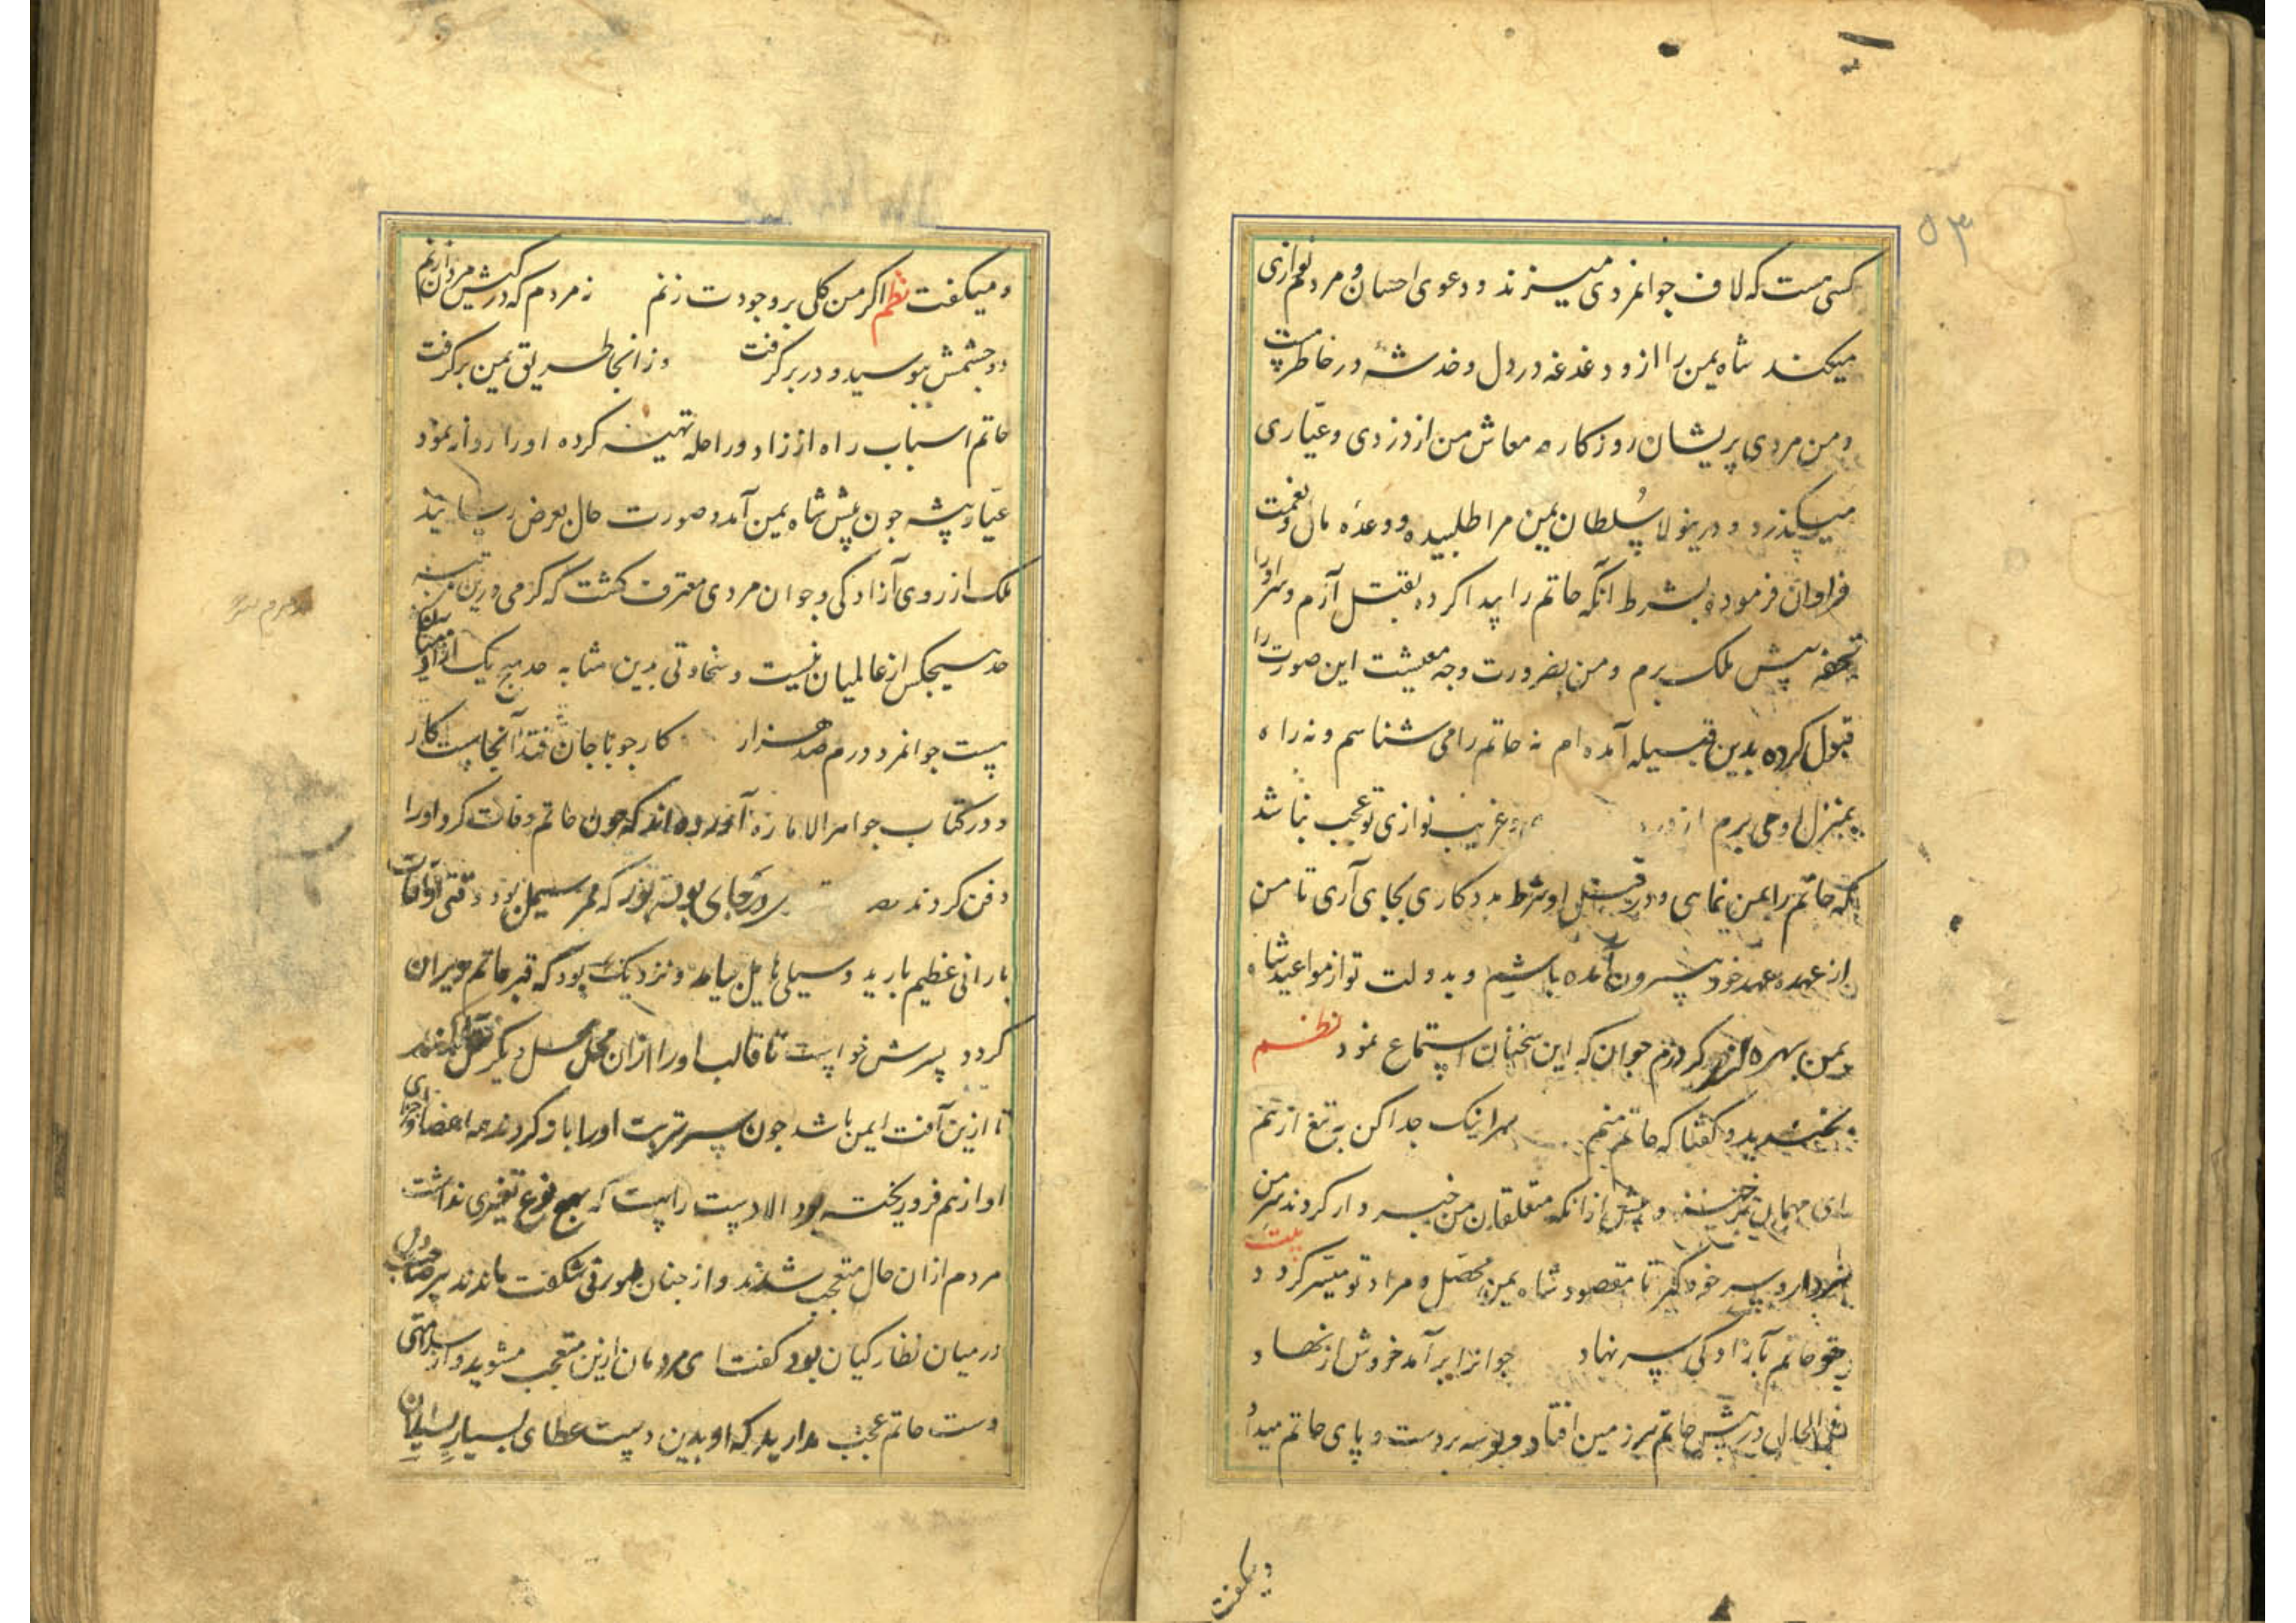 ۵۳
کسی هست که لاف جوانمردی میزند و دعوی احسان و مردم نوازی
میکند شاه یمن را ازو دغدغه در دل و خدشهٔ در خاطرست
و من مردی پریشان روزکارم معاش من از دزدی و عیّاری
میکذرد و درینولا سلطان یمن مرا طلبیده و وعدهٔ مال و نعمت
فراوان فرموده بشرط آنکه حاتم را پیدا کرده بقتل آرم و سر او را
تحفه پیش ملک برم و من بضرورت وجه معیشت این صورت را
قبول کرده بدین قبیله آمده ام نه حاتم را می شناسم و نه راه
بمنزل او می برم از غریب نوازی تو عجب نباشد
که حاتم را بمن نمایی و در قتل او شرط مددکاری بجای آری تا من
از عهدهٔ عهد خود بیرون آمده باشم و بدولت تو از مواعید شاه
یمن بهره کردم جوان که این سخنان استماع نمود نظم
بخندید و کفتا که حاتم منم سر اینک جدا کن به تیغ از تنم
ای مهمان برخیز و پیش از آنکه متعلقان من خبردار کردند سر من
بردار و سر خود کیر تا مقصود شاه یمن محصّل و مراد تو میسّر کردد بیت
چو حاتم بآزادکی سر نهاد جوانرا برآمد خروش از نهاد
فی الحال در پیش حاتم بر زمین افتاد و بوسه بر دست و پای حاتم میداد
و میکفت
و میکفت نظم اکر من کلی بر وجودت زنم نه مردم که در کیش مردان زنم
دو چشمش ببوسید و در بر کرفت وز انجا طریق یمن بر کرفت
حاتم اسباب راه از زاد و راحله تهیه کرده او را روانه نمود
عیّار پیشه چون پیش شاه یمن آمد و صورت حال بعرض رسانید
ملک از روی آزادکی و جوان مردی معترف کشت که کرمی درین مرتبه
حد هیچکس از عالمیان نیست و سخاوتی بدین مثابه حد هیچ یک از
هست جوانمرد درم صد هزار کار چو با جان فتد آنجاست کار
و در کتاب جواهر الاماره آورده اند که چون حاتم وفات کرد او را
دفن کردند در جای بود که ممر سیل بود وقتی از اوقات
بارانی عظیم بارید و سیلی هایل بیامد و نزدیک بود که قبر حاتم ویران
کردد پسرش خواست تا قالب او را از ان محل بمحل دیکر نقل کند
تا ازین آفت ایمن باشد چون سر تربت او را باز کردند همه اعضای و اجزای
او از هم فرو ریخته بود الا دست راست که هیچ نوع تغیری نداشت
مردم از ان حال متعجب شدند و از چنان صورتی شکفت ماندند پیر صاحب دلی
در میان نظارکیان بود کفت ای مردمان ازین متعجب مشوید و از سلامتی
دست حاتم عجب مدارید که او بدین دست عطای بسیار بسایلان